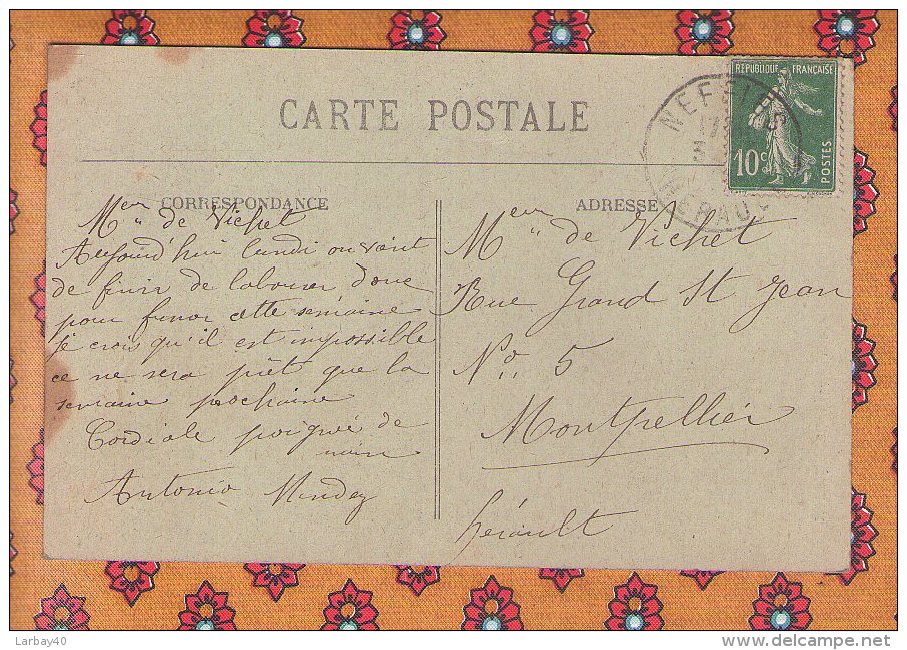 CARTE POSTALE
RÉPUBLIQUE FRANÇAISE
10c
POSTES
NEFFIÈS
HÉRAULT
CORRESPONDANCE
Meur de Vichet
Aujourd'hui lundi on vient
de finir de labourer donc
pour fumer cette sémaine
je crois qu'il est impossible
ce ne sera prêt que la
semaine prochaine
Cordiale poignée de
main
Antonio
ADRESSE
Meur de Vichet
Rue Grand St Jean
No. 5
Montpellier
hérault
Larbay40
www.delcampe.net